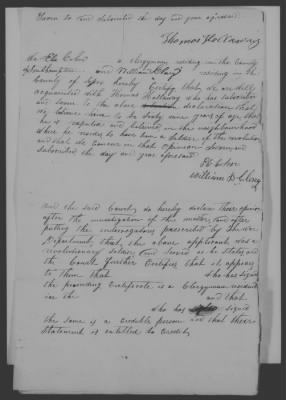 Sworn to and subscribed the day and year aforesaid
Thomas Holloway
We a clergyman residing in the County
of Southampton and William residing in the
County of hereby Certify that we are well
acquainted with Thomas Holloway who has subscribed
and sworn to the above declaration, that
we believe him to be sixty nine years of age, that
he is reputed and believed in the neighbourhood
where he resides to have been a Soldier of the revolution
and that we concur in that opinion Sworn and
subscribed the day and year aforesaid
William
And the said Court do hereby declare their opinion
after the investigation of the matter, and after
putting the interrogatories prescribed by the War
Department, that the above applicant was a
revolutionary soldier and served as he states, and
the Court further Certifies that it appears
to them that who has signed
the preceding Certificate is a Clergyman resident
in the and that
who has signed
the same is a credible person and that their
Statement is entitled to credit,